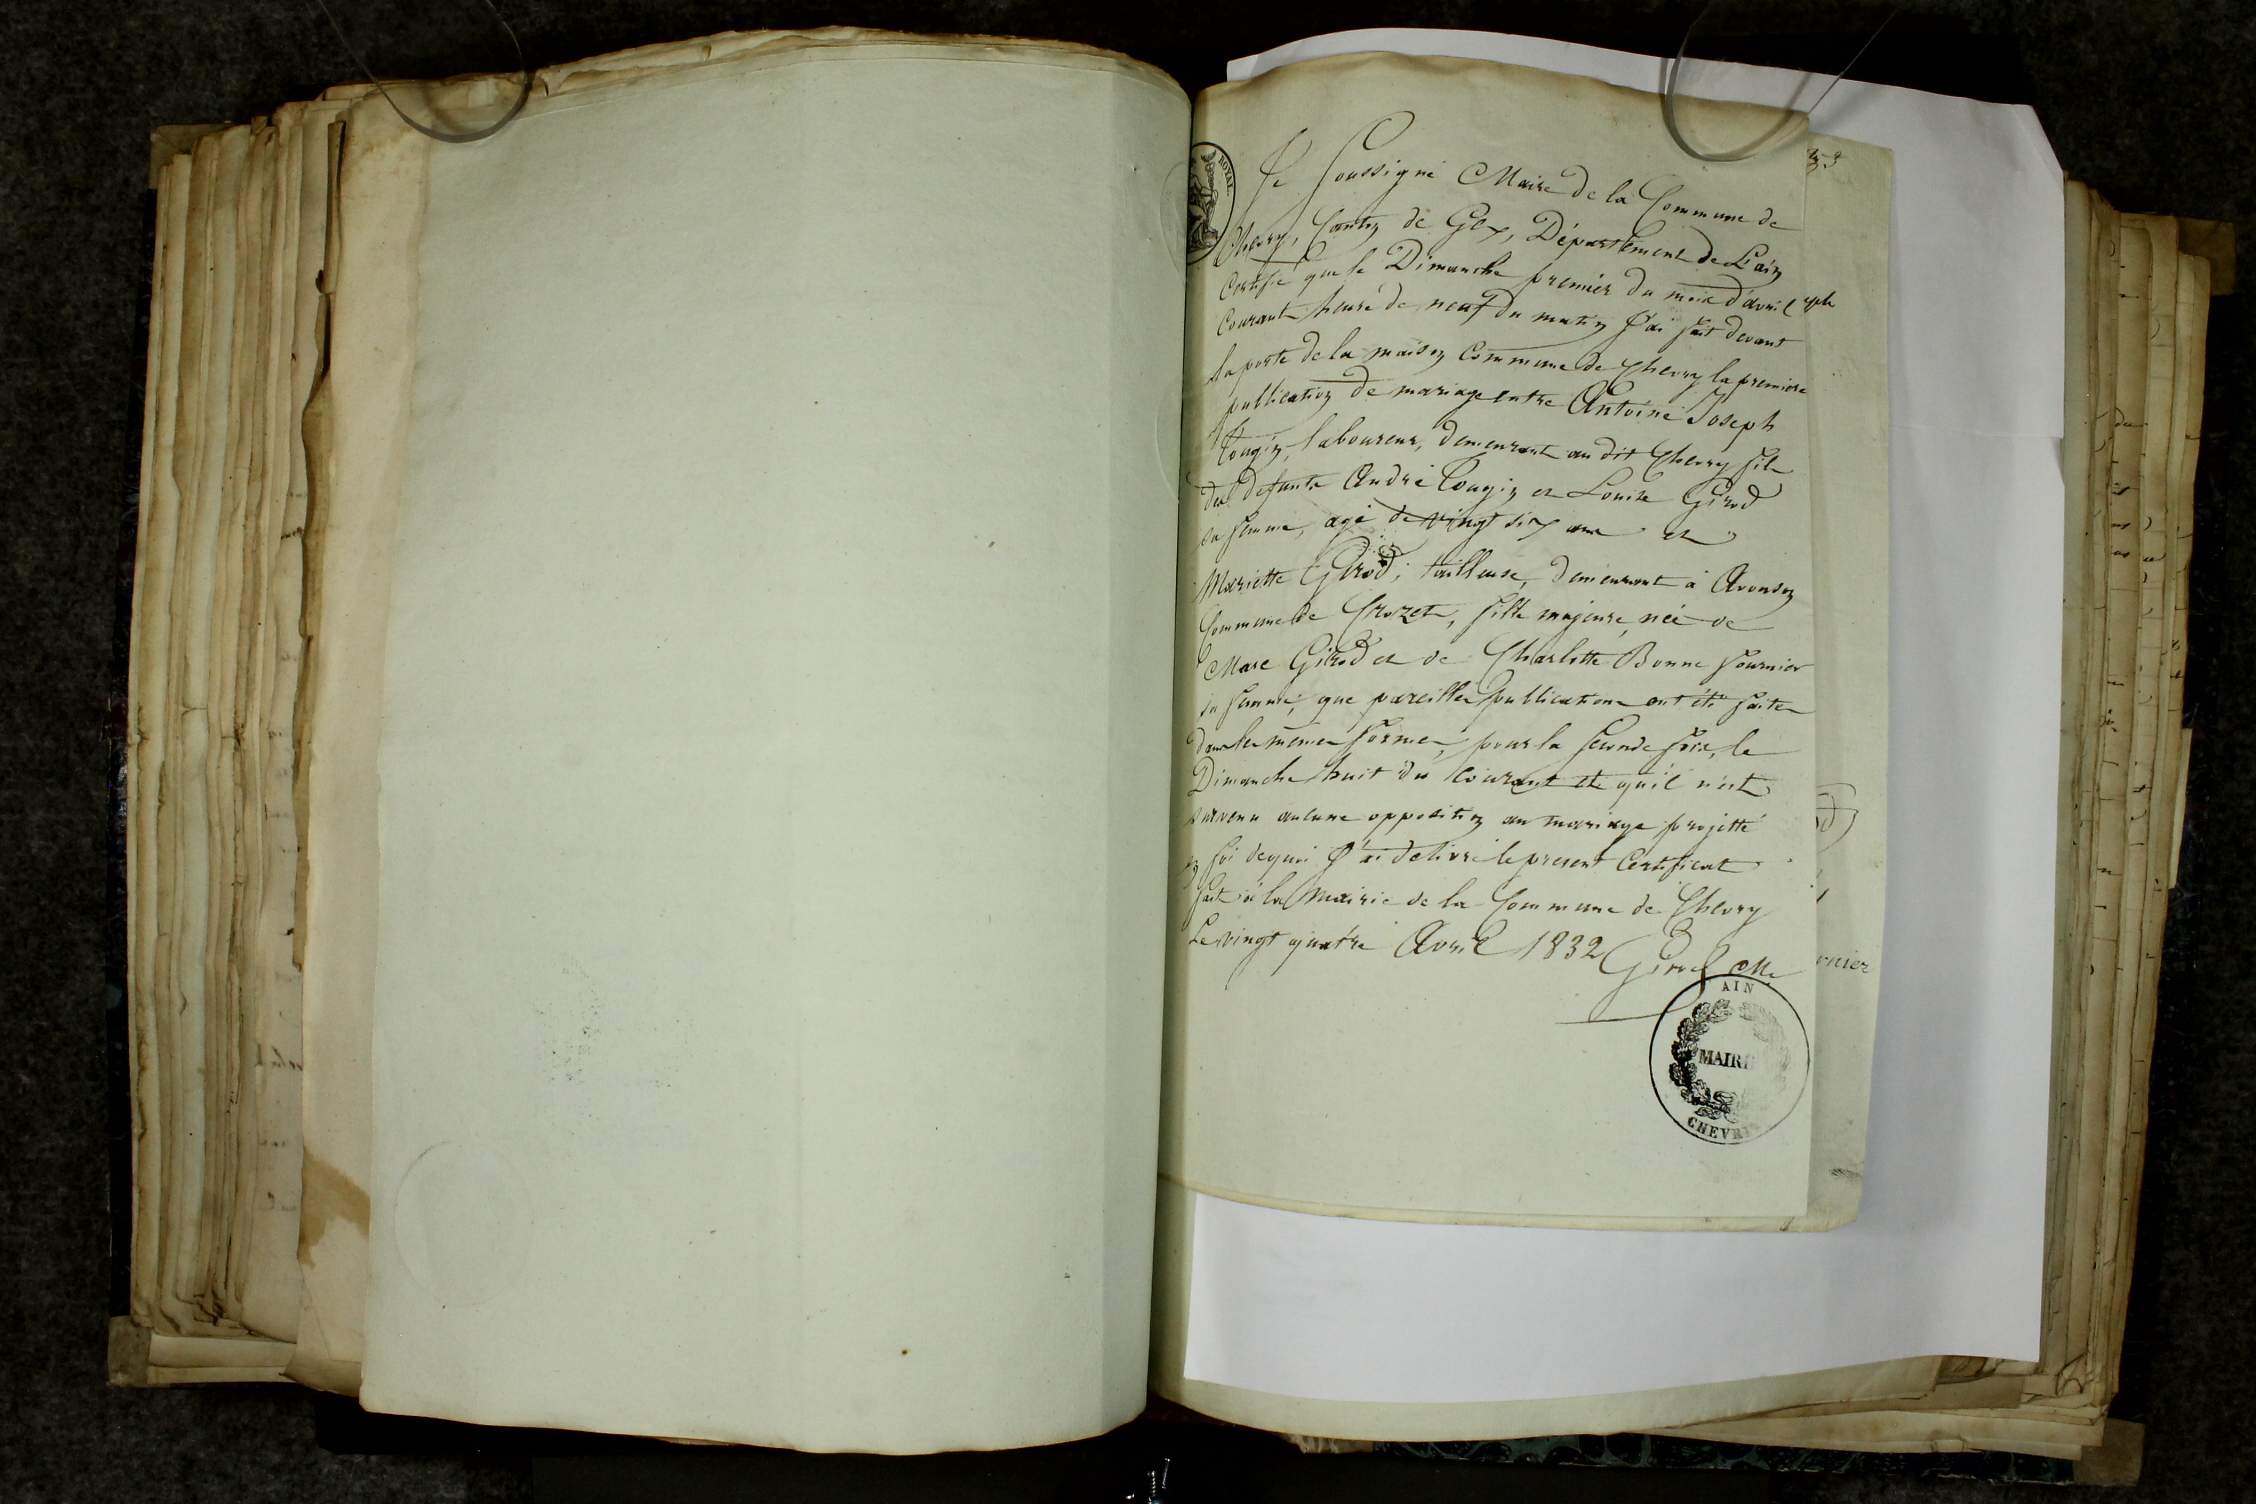 ROYAL.
Je Soussigné Maire de la Commune de
Chevry, Canton de Gex, Département de L'ain
Certifie que le Dimanche premier du mois d'avril
Courant heure de neuf du matin J'ai fait devant
la porte de la maison Commune de Chevry la premiere
publication de mariage entre Antoine Joseph
Tougin, laboureur, demeurant au dit Chevry fils
des defunts André Tougin et Louise Girod
sa femme, agé de vingt six ans et
Mariette Girod, tailleuse, demeurant à Avouson
Commune de Crozet, fille majeure, née de
Marc Girod et de Charlotte Bonne fournier
sa femme; que pareilles publications ont été faites
dans les mêmes formes, pour la seconde fois, le
Dimanche huit du Courant et qu'il n'est
survenu aucune opposition au mariage projetté
en foi de quoi J'ai délivré le present Certificat
fait à la Mairie de la Commune de Chevry
Le vingt quatre Avril 1832 Girod Me
AIN
MAIRI
CHEVRY
rnier